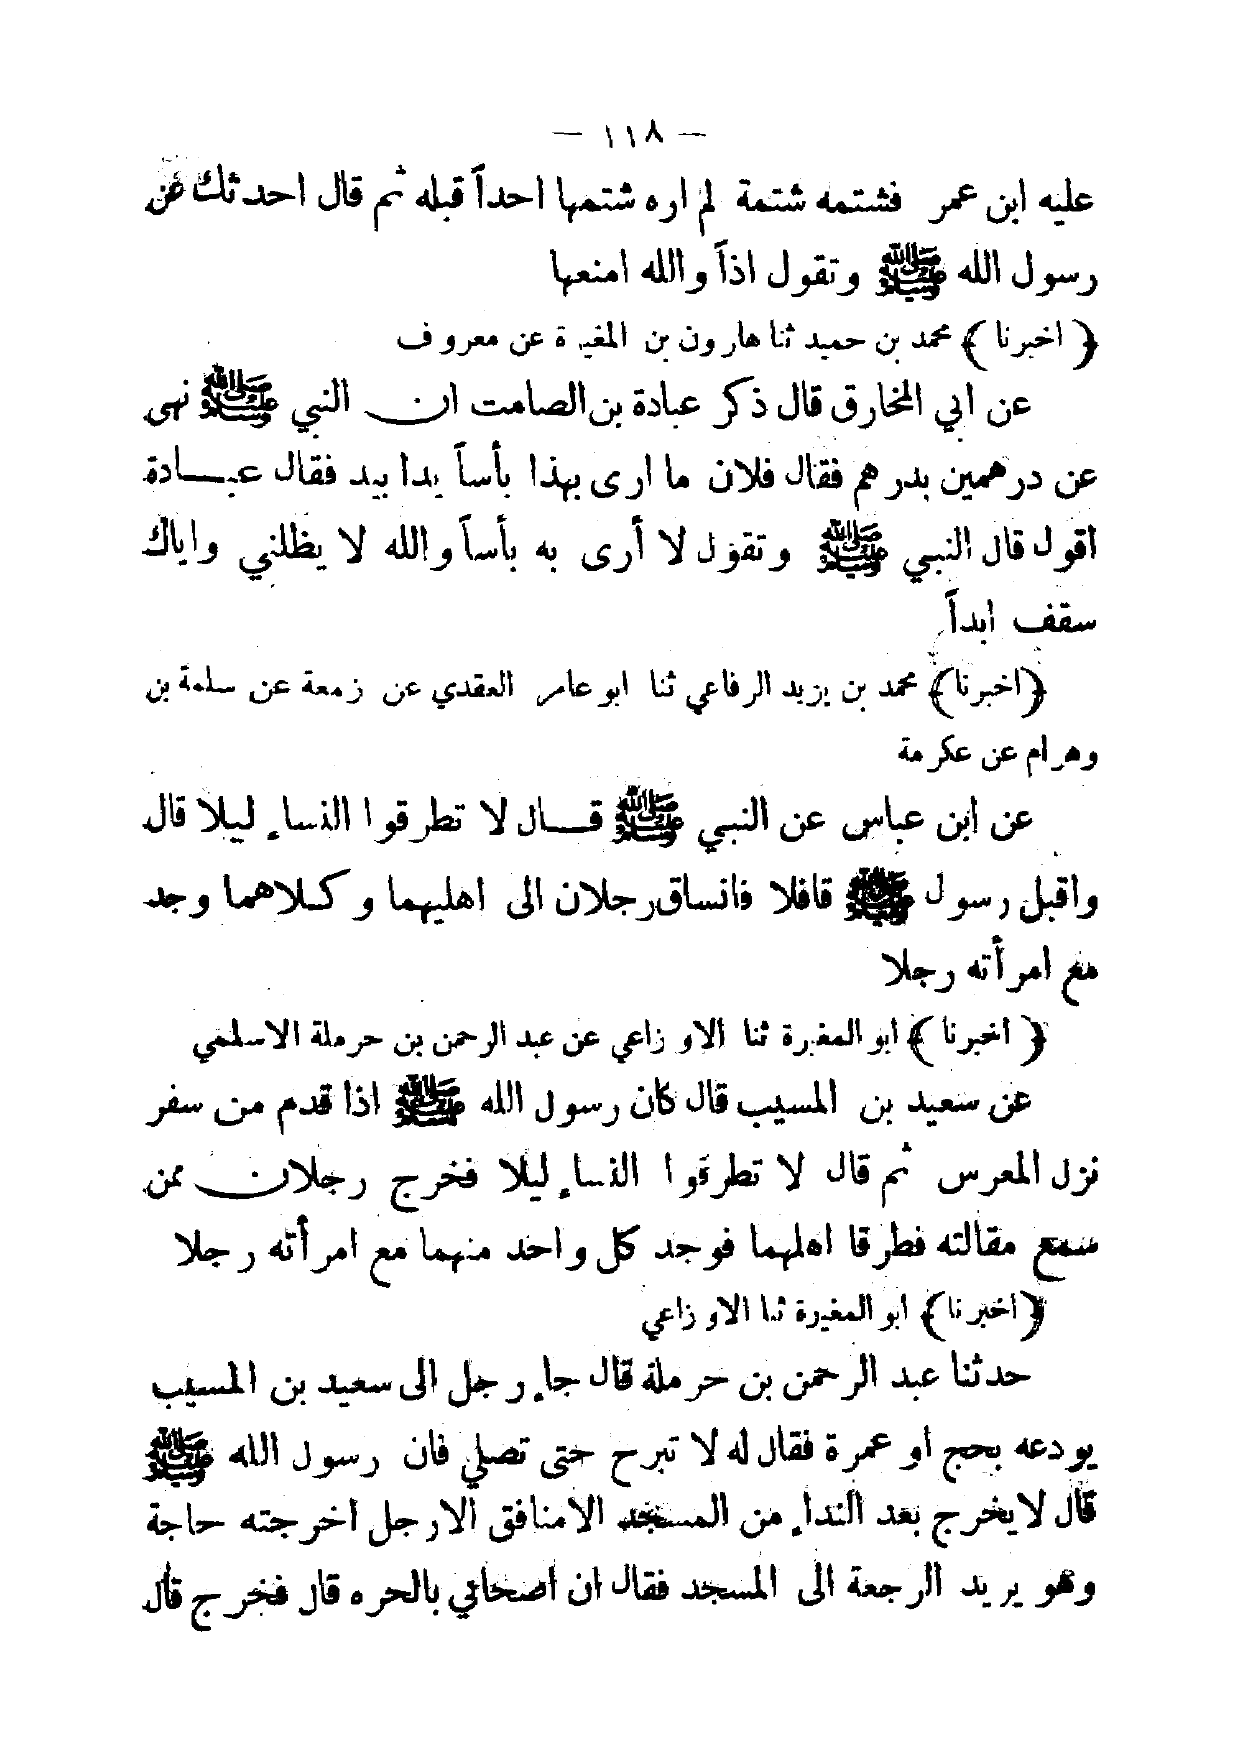 — ١١٨ —
عليه ابن عمر فشتمه شتمة لم اره شتمها احداً قبله ثم قال احدثك عن
رسول الله ﷺ وتقول اذاً والله امنعها
﴿ اخبرنا ﴾ محمد بن حميد ثنا هارون بن المغيرة عن معروف
عن ابي المخارق قال ذكر عبادة بن الصامت ان النبي ﷺ نهى
عن درهمين بدرهم فقال فلان ما ارى بهذا بأساً يدا بيد فقال عبادة
اقول قال النبي ﷺ وتقول لا أرى به بأساً والله لا يظلني واياك
سقف ابداً
﴿اخبرنا﴾ محمد بن يزيد الرفاعي ثنا ابو عامر العقدي عن زمعة عن سلمة بن
وهرام عن عكرمة
عن ابن عباس عن النبي ﷺ قال لا تطرقوا النساء ليلا قال
واقبل رسول ﷺ قافلا فانساق رجلان الى اهليهما وكلاهما وجد
مع امرأته رجلا
﴿ اخبرنا ﴾ ابو المغيرة ثنا الاوزاعي عن عبد الرحمن بن حرملة الاسلمي
عن سعيد بن المسيب قال كان رسول الله ﷺ اذا قدم من سفر
نزل المعرس ثم قال لا تطرقوا النساء ليلا فخرج رجلان ممن
سمع مقالته فطرقا اهلهما فوجد كل واحد منهما مع امرأته رجلا
﴿اخبرنا﴾ ابو المغيرة ثنا الاوزاعي
حدثنا عبد الرحمن بن حرملة قال جاء رجل الى سعيد بن المسيب
يودعه بحج او عمرة فقال له لا تبرح حتى تصلي فان رسول الله ﷺ
قال لا يخرج بعد النداء من المسجد الا منافق الا رجل اخرجته حاجة
وهو يريد الرجعة الى المسجد فقال ان اصحابي بالحره قال فخرج قال